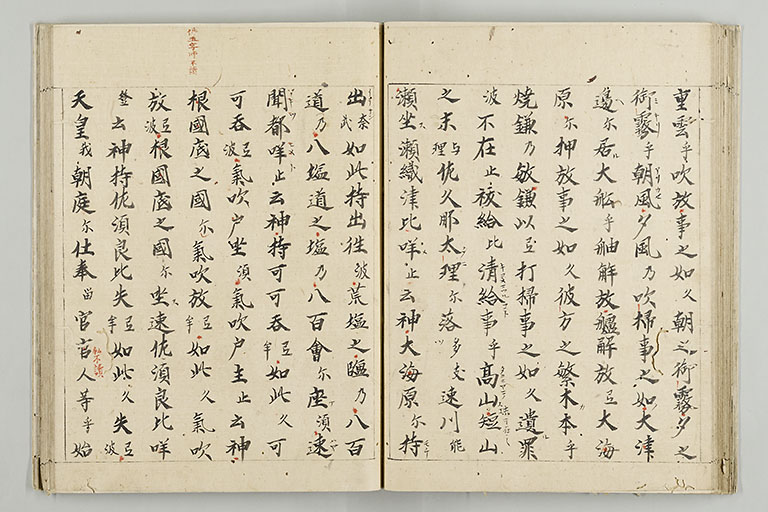 重雲乎吹放事之如久朝之御霧夕之
御霧乎朝風夕風乃吹掃事之如大津
邊尓居大舩乎舳解放艫解放弖大海
原尓押放事之如久彼方之繁木本乎
焼鎌乃敏鎌以弖打掃事之如久遺罪
波不在止祓給比清給事乎髙山短山
之末与理佐久那太理尓落多支速川能
瀬坐瀬織津比咩止云神大海原尓持
出奈武如此持出往波荒塩之塩乃八百
道乃八塩道之塩乃八百會尓座須速
開都咩止云神持可可呑牟弖如此久可
可呑弖波氣吹户坐須氣吹户主止云神
根國底之國尓氣吹放牟弖如此久氣吹
放弖波根國底之國尓坐速佐須良比咩
登云神持佐須良比失牟弖如此久失弖波
天皇我朝庭尓仕奉留官官人等乎始